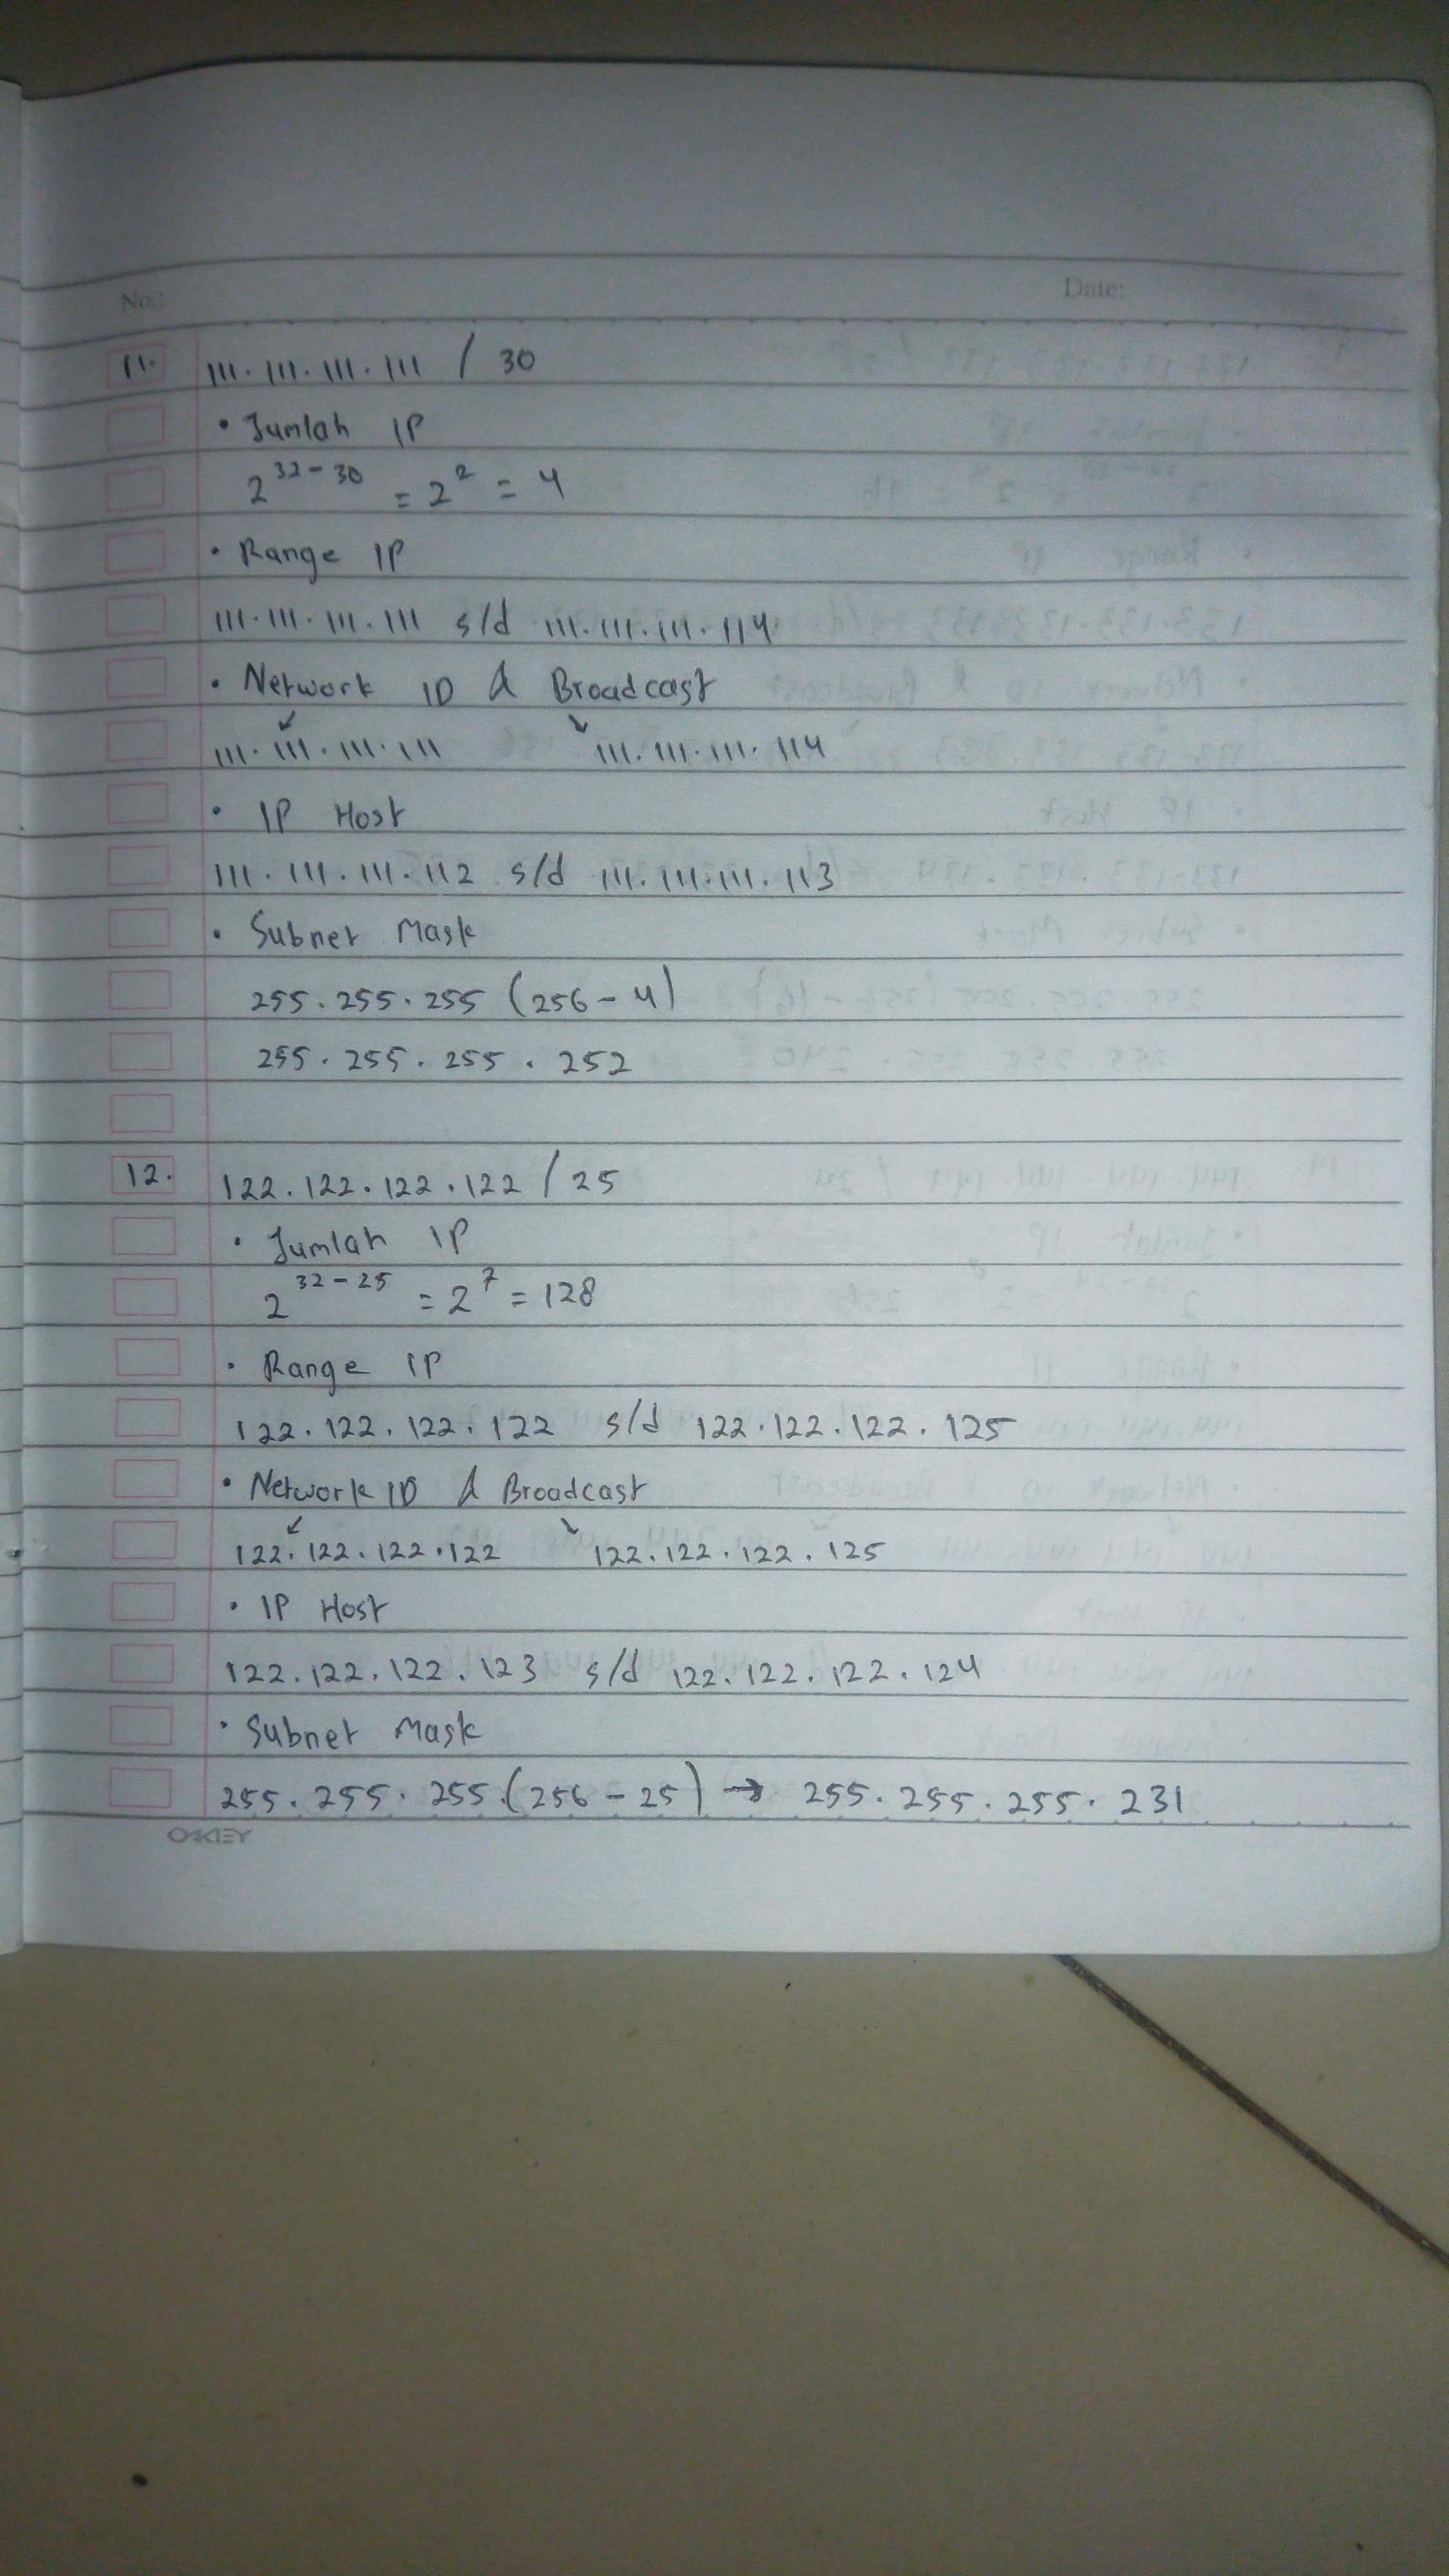 No.: Date:
11. 111.111.111.111 / 30
• Jumlah IP
2^32-30 = 2^2 = 4
• Range IP
111.111.111.111 s/d 111.111.111.114
• Network ID & Broadcast
111.111.111.111 111.111.111.114
• IP Host
111.111.111.112 s/d 111.111.111.113
• Subnet Mask
255.255.255 (256-4)
255.255.255.252
12. 122.122.122.122 / 25
• Jumlah IP
2^32-25 = 2^7 = 128
• Range IP
122.122.122.122 s/d 122.122.122.125
• Network ID & Broadcast
122.122.122.122 122.122.122.125
• IP Host
122.122.122.123 s/d 122.122.122.124
• Subnet Mask
255.255.255.(256-25) → 255.255.255.231
OKEY